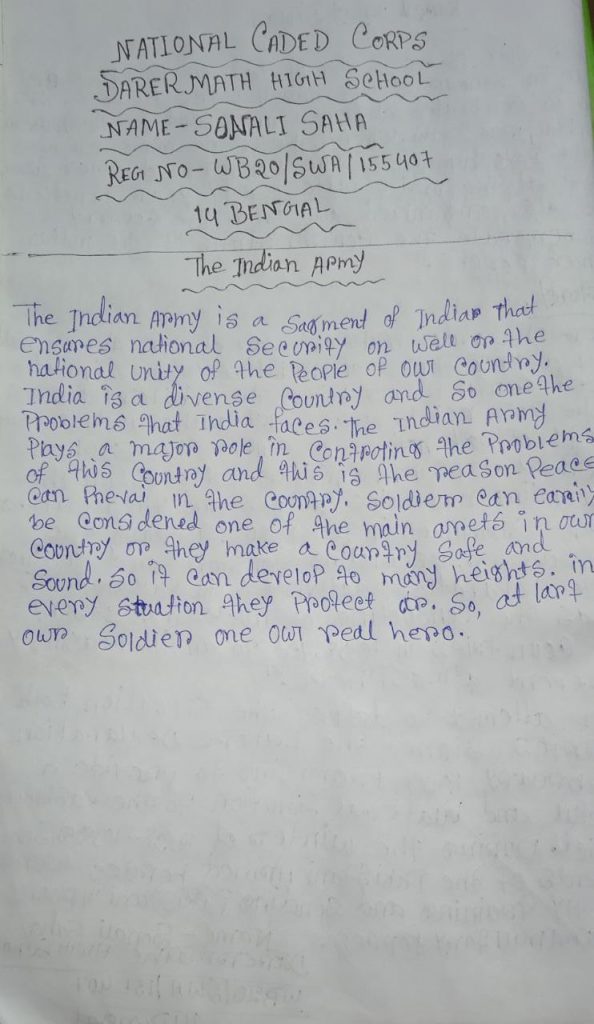 NATIONAL CADED CORPS
DARER MATH HIGH SCHOOL
NAME - SONALI SAHA
REG NO - WB20/SWA/155407
14 BENGAL
The Indian Army
The Indian Army is a Sagment of Indian that
ensures national Security on well on the
national unity of the People of our Country.
India is a divense Country and so one the
Problems that India faces. The Indian Army
Plays a major role in Controting the Problems
of this Country and this is the reason Peace
Can Prevai in the Country. Soldiem can earily
be Considened one of the main arrets in our
Country or they make a Country Safe and
Sound. So it can develop to many heights. in
every Stuation they Protect or. So, at lart
own Soldier one our real hero.